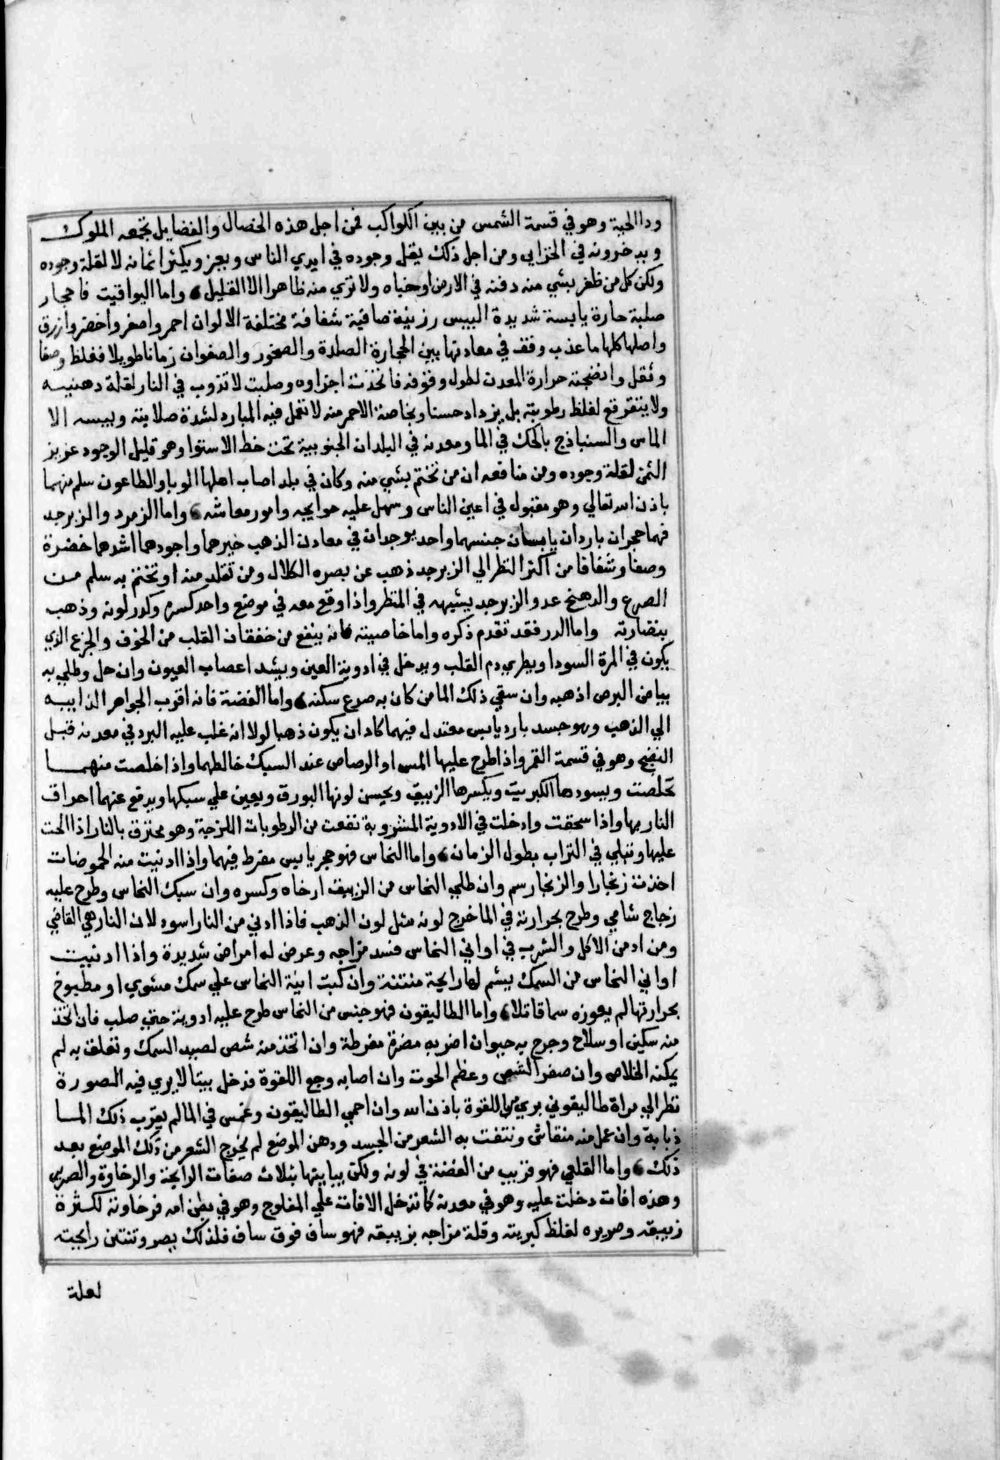 ودا الحية وهو في قسمة الشمس من بين الكواكب فمن اجل هذه الخصال والفضايل تجمعه الملوك
ويدخرونه في الخزاين ومن اجل ذلك يقل وجوده في ايدي الناس ويعز ويكثر اثمانه لا لقلة وجوده
ولكن كل من ظفر بشي منه دفنه في الارض اوخباه ولا تري منه ظاهرا الا القليل واما اليواقيت فاحجار
صلبة حارة يابسة شديدة اليبس رزينة صافية شفافة مختلفة الالوان احمر واصفر واخضر وازرق
واصلها كلها ما عذب وقف في معادنها بين الحجارة الصلدة والصخور والصفوان زمانا طويلا فغلظ وصفا
وثقل وانضجته حرارة المعدن لطول وقوفه فاتخذت اجزاوه وصلبت لا تذوب في النار لقلة دهنيه
ولا يتفرقع لغلظ رطوبته بل يزداد حسنا وبخاصة الاحمر منه لا تعمل فيه المبارد لشدة صلابته ويبسه الا
الماس والسنباذج بالحك في الما ومعدنه في البلدان الجنوبية تحت خط الاستوا وهو قليل الوجود عزيز
الثمن لقلة وجوده ومن منافعه ان من تختم بشي منه وكان في بلد اصاب اهلها الوبا والطاعون سلم منهما
باذن الله تعالي وهو مقبول في اعين الناس وسهل عليه حوايجه وامور معاشه واما الزمرد والزبرجد
فهما حجران باردان يابسان جنسهما واحد يوجدان في معادن الذهب خيرهما واجودهما اشدهما خضرة
وصفا وشفافا من اكثر النظر الي الزبرجد ذهب عن بصره الكلال ومن تقلد منه او تختم به سلم من
الصرع والدهنج عدو الزبرجد يشبهه في المنظر واذا وقع معه في موضع واحد كسره وكدر لونه وذهب
بنضارته واما الدر فقد تقدم ذكره واما خاصيته فانه ينفع من خفقان القلب من الخوف والجزع الذي
يكون في المرة السودا ويطري دم القلب ويدخل في ادوية العين ويشد اعصاب العيون وان حل وطلي به
بياض البرص اذهبه وان سقي ذلك الما من كان به صرع سكنه واما الفضة فانه اقرب الجواهر الذايبه
الي الذهب وهو جسد بارد يابس معتدل فيهما كاد ان يكون ذهبا لولا انه غلب عليه البرد في معدنه قبل
النضج وهو في قسمة القمر واذا طرح عليها المس او الرصاص عند السبك خالطهما واذا خلصت منهما
تخلصت ويسودها الكبريت ويكسرها الزيبق ويحسن لونها البورق ويعين علي سبكها ويدفع عنهما احراق
النار بها واذا سحقت وادخلت في الادوية المشروبة نفعت من الرطوبات اللزجة وهو محترق بالنار اذا الحت
عليها وتبلي في التراب بطول الزمان واما النحاس فهو حجر يابس مفرط فيهما واذا ادنيت منه الحموضات
اخذت زنجارا والزنجار سم وان طلي النحاس من الزيبق ارخاه وكسره وان سبك النحاس وطرح عليه
زجاج شامي وطرح بحرارته في الما خرج لونه مثل لون الذهب فاذا ادني من النار اسود لان النار هي القاضي
ومن ادمن الاكل والشرب في اواني النحاس فسد مزاجه وعرض له امراض شديدة واذا ادنيت
اواني النحاس من السمك يشم لها رايحة منتنة وان كبت انية النحاس علي سمك مشوي او مطبوخ
بحرارتها لم يعوزه سما قاتلا واما الطاليقون فهو جنس من النحاس طرح عليه ادوية حتي صلب فان اتخذ
منه سكين او سلاح وجرح به حيوان اضر به مضرة مفرطة وان اتخذ منه شص لصيد السمك وتعلق به لم
يمكنه الخلاص وان صغر الشص وعظم الحوت وان اصابه وجع اللقوة فدخل بيتا لا يري فيه الصورة
نظر الي مراة طاليقوني بري من اللقوة باذن الله وان احمي الطاليقون وغمس في الما لم يقرب ذلك الما
ذبابة وان عمل منه منقاش ونتفت به الشعر من الجسد ودهن الموضع لم يخرج الشعر من ذلك الموضع بعد
ذلك واما القلعي فهو قريب من الفضة في لونه ولكن يباينها بثلاث صفات الرايحة والرخاوة والصرير
وهذه افات دخلت عليه وهو في معدنه كما تدخل الافات علي المفلوج وهو في بطن امه فرخاوته لكثرة
زيبقه وصريره لغلظ كبريته وقلة مزاجه بزيبقه فهو ساف فوق ساف فلذلك يصر وتنتن رايحته
لعلة